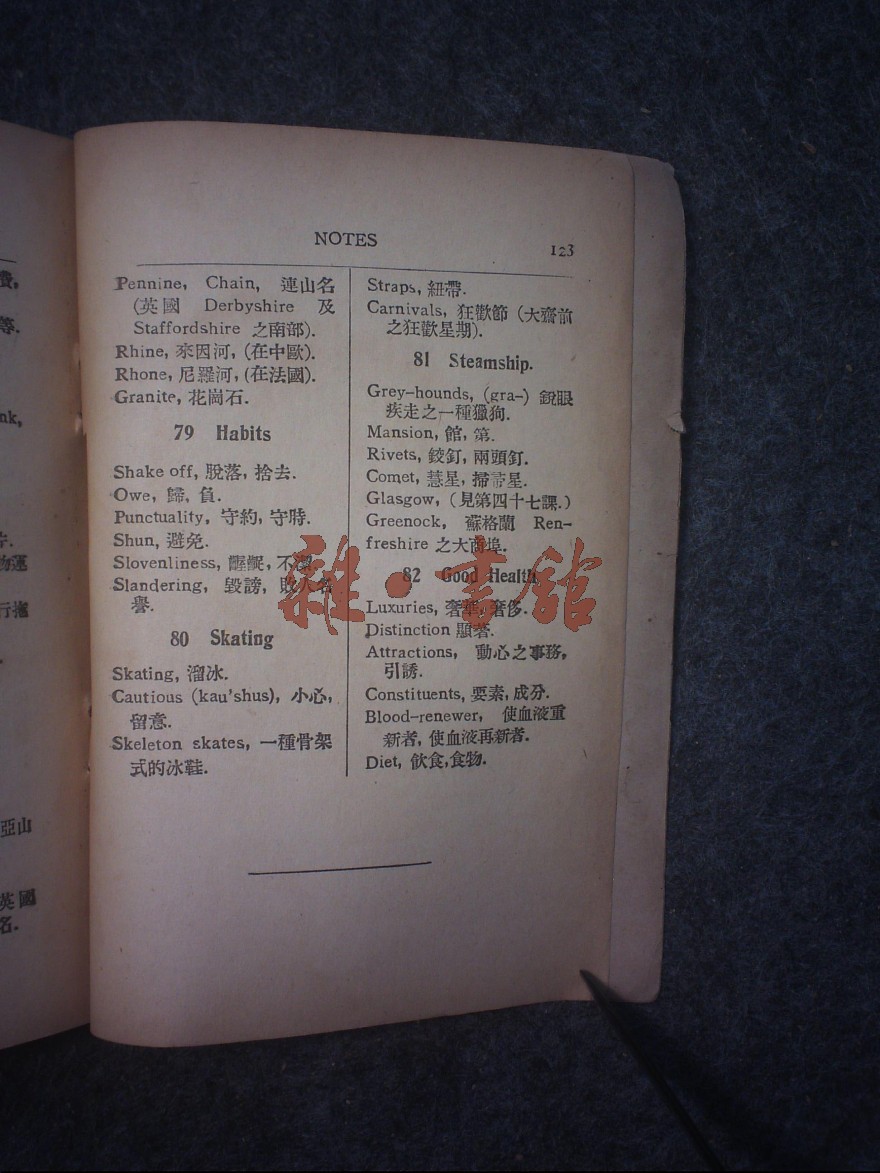 NOTES
123
Pennine, Chain, 連山名
(英國 Derbyshire 及
Staffordshire 之南部).
Rhine, 來因河, (在中歐).
Rhone, 尼羅河, (在法國).
Granite, 花崗石.
79 Habits
Shake off, 脫落, 捨去.
Owe, 歸, 負.
Punctuality, 守約, 守時.
Shun, 避免.
Slovenliness, 不潔.
Slandering, 毀謗, 敗人名
譽.
80 Skating
Skating, 溜冰.
Cautious (kau'shus), 小心,
留意.
Skeleton skates, 一種骨架
式的冰鞋.
Straps, 紐帶.
Carnivals, 狂歡節 (大齋前
之狂歡星期).
81 Steamship.
Grey-hounds, (gra-) 銳眼
疾走之一種獵狗.
Mansion, 館, 第.
Rivets, 鉸釘, 兩頭釘.
Comet, 彗星, 掃帚星.
Glasgow, (見第四十七課.)
Greenock, 蘇格蘭 Ren-
freshire 之大商埠.
82 Good Health
Luxuries, 奢華, 奢侈.
Distinction 顯著.
Attractions, 動心之事務,
引誘.
Constituents, 要素, 成分.
Blood-renewer, 使血液重
新者, 使血液再新者.
Diet, 飲食,食物.
雜·書館
等.
nk,
物運
行拖
亞山
英國
名.